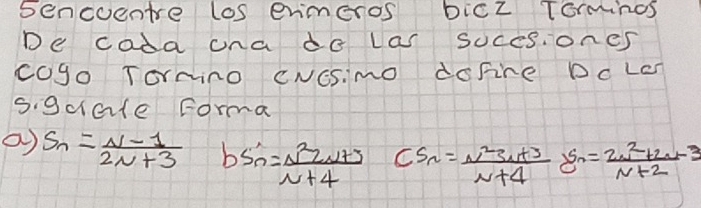 5encuentre los primeros biez Terminos
De cada una de Las sucesiones
cuyo Tormino enesimo define De Las
siguiente Forma
a) Sn = N-1 / 2N+3 b Sn = N²2N+3 / N+4 c Sn = N²3N+3 / N+4 Sn = 2N²+2N-3 / N+2